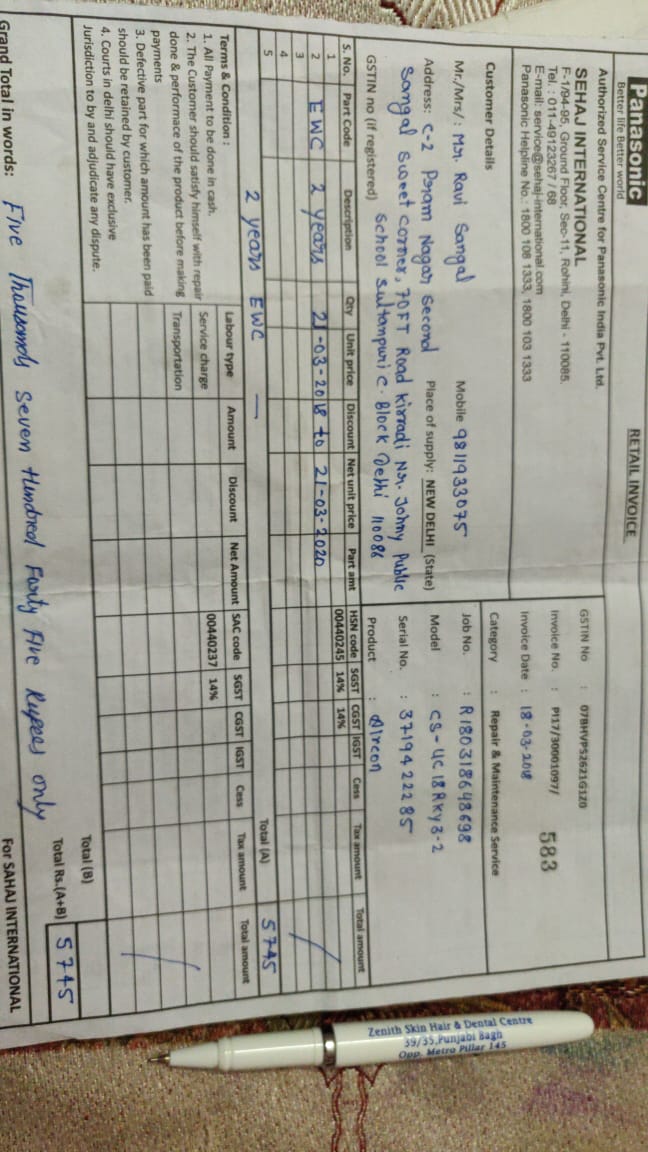 Panasonic
Better life Better world
RETAIL INVOICE
Authorized Service Centre for Panasonic India Pvt. Ltd.
SEHAJ INTERNATIONAL
F-1/94-95, Ground Floor, Sec-11, Rohini, Delhi - 110085.
Tel. : 011-49123267 / 68
E-mail: service@sehaj-international.com
Panasonic Helpline No.: 1800 108 1333, 1800 103 1333
GSTIN No : 07BHVPS2621G1Z0
Invoice No. : PI17/30001097/ 583
Invoice Date : 18-03-2018
Customer Details
Category : Repair & Maintenance Service
Mr./Mrs/: Mr. Ravi Sangal Mobile 9811933075
Job No. : R180318648698
Address: C-2 Prem Nagar Second Place of supply: NEW DELHI (State)
Model : CS-UC18RKY3-2
Sangal Sweet Corner, 70FT Road Kirradi Nr. Johny Public
Serial No. : 3719422285
GSTIN no (if registered) School Sultanpuri C-Block Delhi 110086
Product : Aircon
S. No. Part Code Description Qty Unit price Discount Net unit price Part amt HSN code SGST CGST IGST Cess Tax amount Total amount
1 00440245 14% 14%
2 EWC 2 years 21-03-2018 to 21-03-2020
3
4
5 2 years EWC Total (A) 5745
Terms & Condition :
1. All Payment to be done in cash.
2. The Customer should satisfy himself with repair
done & performace of the product before making
payments
3. Defective part for which amount has been paid
should be retained by customer.
4. Courts in delhi should have exclusive
Jurisdiction to by and adjudicate any dispute.
Labour type Amount Discount Net Amount SAC code SGST CGST IGST Cess Tax amount Total amount
Service charge 00440237 14%
Transportation
Total (B)
Total Rs.(A+B) 5745
Grand Total in words: Five Thousands Seven Hundred Forty Five Rupees only
For SAHAJ INTERNATIONAL
Zenith Skin Hair & Dental Centre
39/35,Punjabi Bagh
Opp. Metro Pillar 145